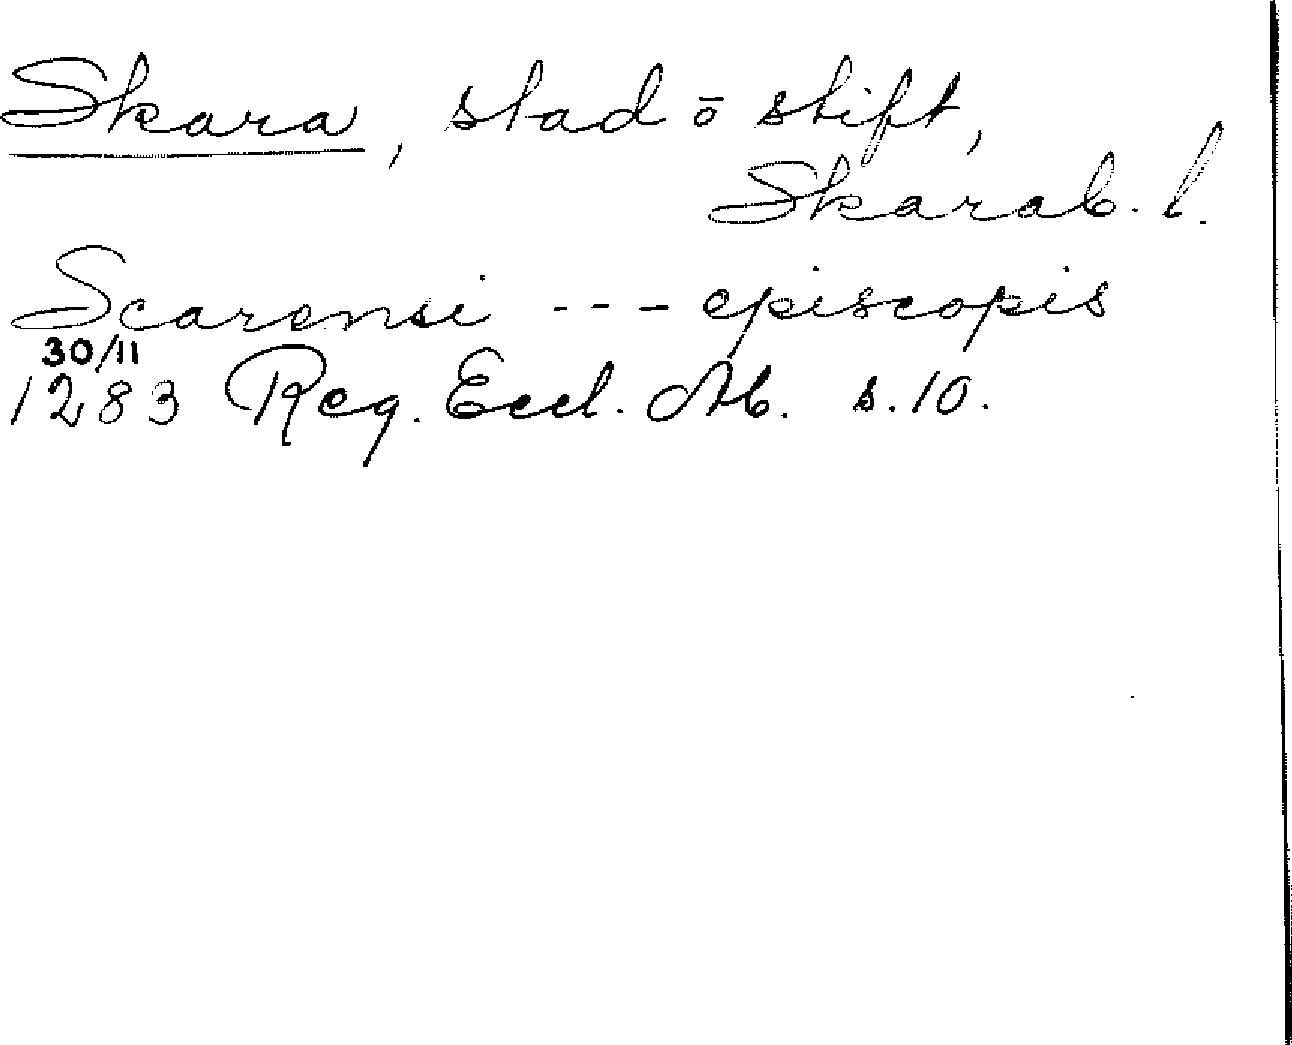 Skara, stad ō stift,
Skarab. l.
Scarensi --- episcopis
30/11
1283 Reg. Eccl. Ab. s. 10.